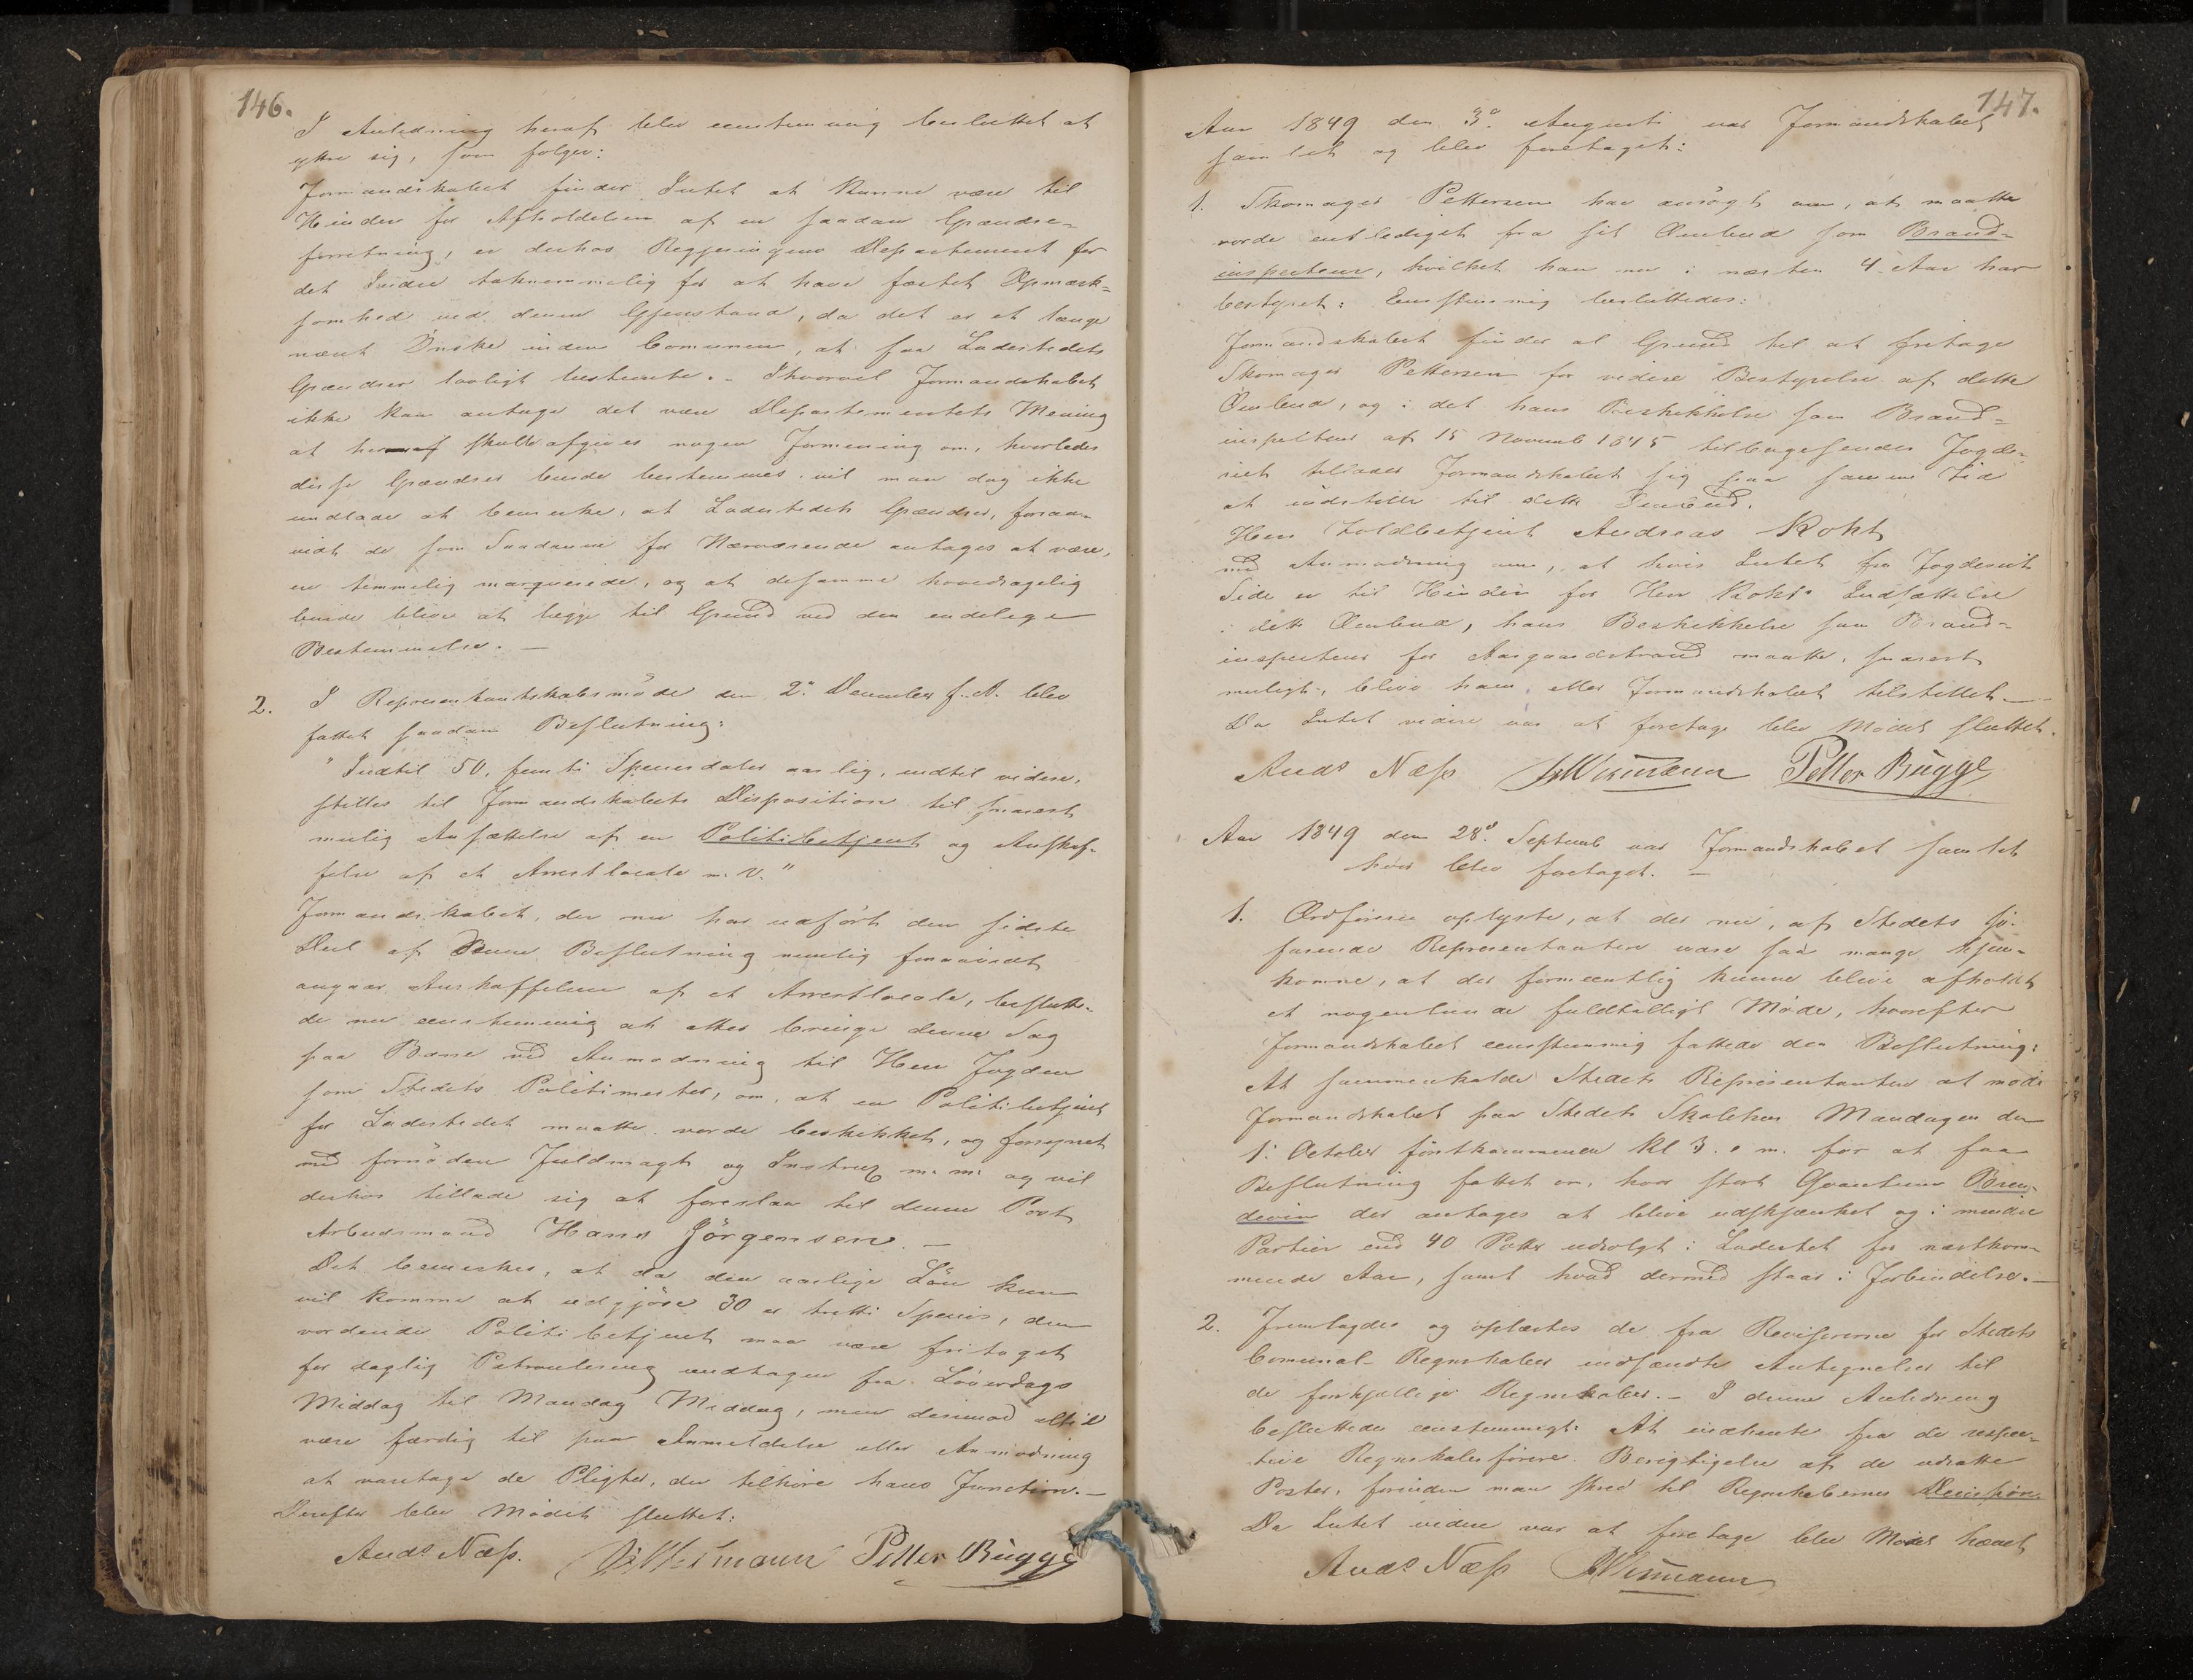 146.
I Anledning heraf blev eenstemmig besluttet at
yttre sig, som følger:
Formandskabet finder Intet at kunne være til
Hinder for Afholdelsen af en saadan Grændse-
forretning, er derhos Regjeringens Departement for
det Indre taknemmelig for at have fæstet Opmærk-
somhed ved denne Gjenstand, da det er et længe
nært Ønske inden Comunen, at faa Ladestedets
Grændser lovligt bestemte. - Ihvorvel Formandskabet
ikke kan antage det være Departementets Mening
at heraf skulde afgives nogen Formening om, hvorledes
disse Grændser burde bestemmes, vil man dog ikke
undlade at bemærke, at Ladestedets Grændser, forsaa-
vidt de som Saadanne for Nærværende antages at være,
er temmelig marquerede, og at desamme hovedsagelig
burde blive at lægge til Grund ved den endelige
Bestemmelse. -
2. I Representantskabsmöde den 2den December f. A. blev
fattet saadan Beslutning:
"Indtil 50, femti Speciesdaler aarlig, indtil videre,
stilles til Formandskabets Disposition til snarest
mulig Ansættelse af en Politibetjent og Anskaf-
felse af et Arrestlocale m. v."
Formandskabet, der nu har udført den sidste
Deel af denne Beslutning nemlig forsaavidt
angaar Anskaffelsen af et Arrestlocale, beslutte-
de nu eenstemmig at atter bringe denne Sag
paa Bane ved Anmodning til Herr Fogden
som Stedets Politimester, om, at en Politibetjent
for Ladestedet maatte vorde beskikket, og forsynet
med fornöden Fuldmagt og Instrux m. m. og vil
derhos tillade sig at foreslaa til denne Post
Arbeidsmand Hans Jörgensen. -
Det bemærkes, at da den aarlige Lön kun
vil komme at udgjöre 30 er tretti Species, den
vordende Politibetjent maa være fritaget
for daglig Patroulering undtagen fra Löverdags
Middag til Mandag Middag, men derimod altid
være færdig til paa Anmeldelse eller Anmodning
at varetage de Pligter, der tilhöre hans Function. -
Derefter blev Mödet sluttet:
Ands Næss. Petter Bugge
147.
Aar 1849 den 3die Augusti var Formandskabet
samlet og blev foretaget:
1. Skomager Pettersen har ansögt om, at maatte
vorde entlediget fra sit Ombud som Brand-
inspecteur, hvilket han nu i næsten 4 Aar har
bestyret: Eenstemmig besluttedes:
Formandskabet finder al Grund til at fritage
Skomager Pettersen for videre Bestyrelse af dette
Ombud, og i det hans Beskikkelse som Brand-
inspecteur af 15 Novemb 1845 tilbagesendes Fogde-
riet tillader Formandskabet sig paa samme Tid
at indstille til dette Ombud.
Herr Toldbetjent Andreas Rokt
med Anmodning om, at hvis Intet fra Fogderiets
Side er til Hinder for Herr Rokts Indsættelse
i dette Ombud, hans Beskikkelse som Brand-
inspecteur for Aasgaardstrand maatte, snarest
muligt, blive ham eller Formandskabet tilstillet. -
Da Intet videre var at foretage blev Mödet sluttet.
Ands Næss Petter Bugge
Aar 1849 den 28de Septemb var Formandskabet samlet
hvor blev foretaget. -
1. Ordføreren oplyste, at der nu, af Stedets sö-
farende Representanter vare saa mange hjem-
komne, at der formeentlig kunne blive afholdt
et nogenlunde fuldtalligt Möde, hvorefter
Formandskabet eenstemmig fattede den Beslutning:
At sammenkalde Stedets Representanter at möde
Formandskabet paa Stedets Skolehus Mandagen den
1. October förstkommende Kl 3. e m. for at faa
Beslutning fattet om, hvor stort Qvantum Bræn-
deviin der antages at blive udskjænket og i mindre
Partier end 40 Potter udsolgt i Ladestet for næstkom-
mende Aar, samt hvad dermed staar i Forbindelse. -
2. Fremlagdes og oplæstes de fra Revisorerne for Stedets
Comunal-Regnskaber indsendte Antegnelser til
de forskjellige Regnskaber. - I denne Anledning
besluttedes eenstemmigt: At indhente fra de respec-
tive Regnskabsförere Berigtigelse af de udsatte
Poster, forinden man skred til Regnskabernes Decision.
Da Intet videre var at foretage blev Mödet hævet
Ands Næss